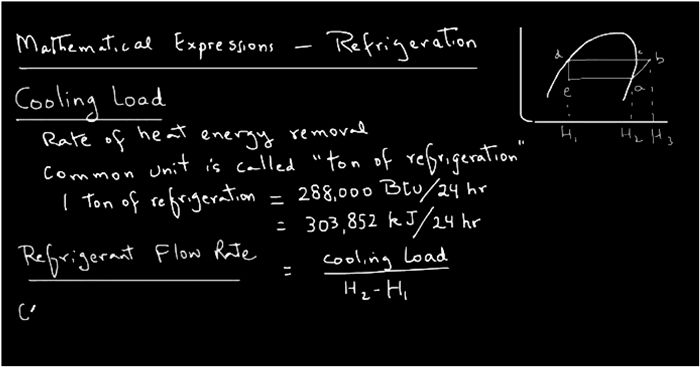 Mathematical Expressions - Refrigeration
Cooling Load
Rate of heat energy removal
Common unit is called "ton of refrigeration"
1 Ton of refrigeration = 288,000 Btu/24 hr
= 303,852 kJ/24 hr
Refrigerant Flow Rate = cooling Load
H2 - H1
d c b
e a
H1 H2 H3